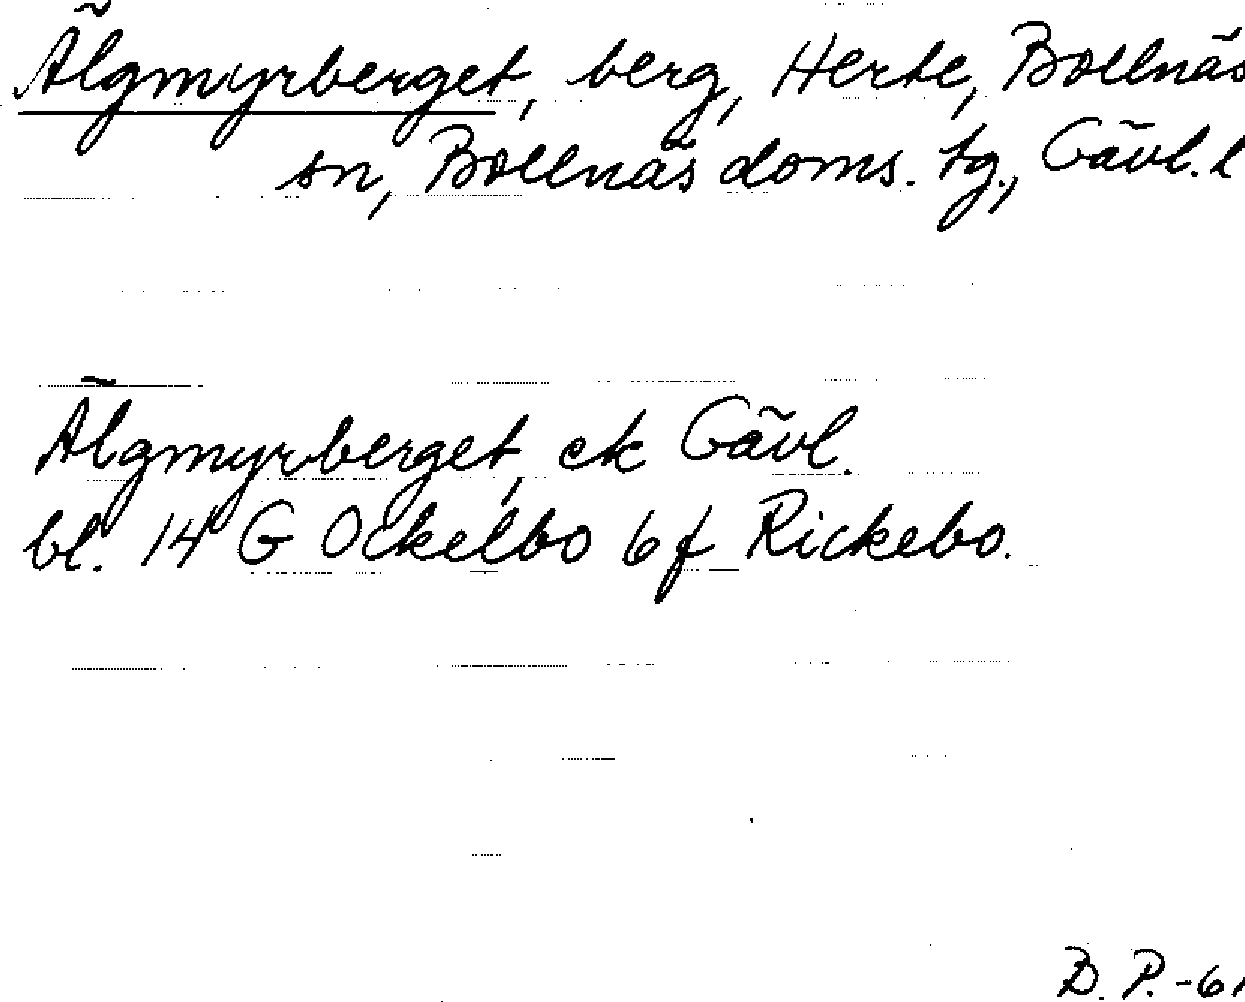 Älgmyrberget, berg, Herte, Bollnäs
sn, Bollnäs doms. tg., Gävl. l
Älgmyrberget, ek Gävl.
bl. 14 G Ockelbo 6f Rickebo.
B. P. -61